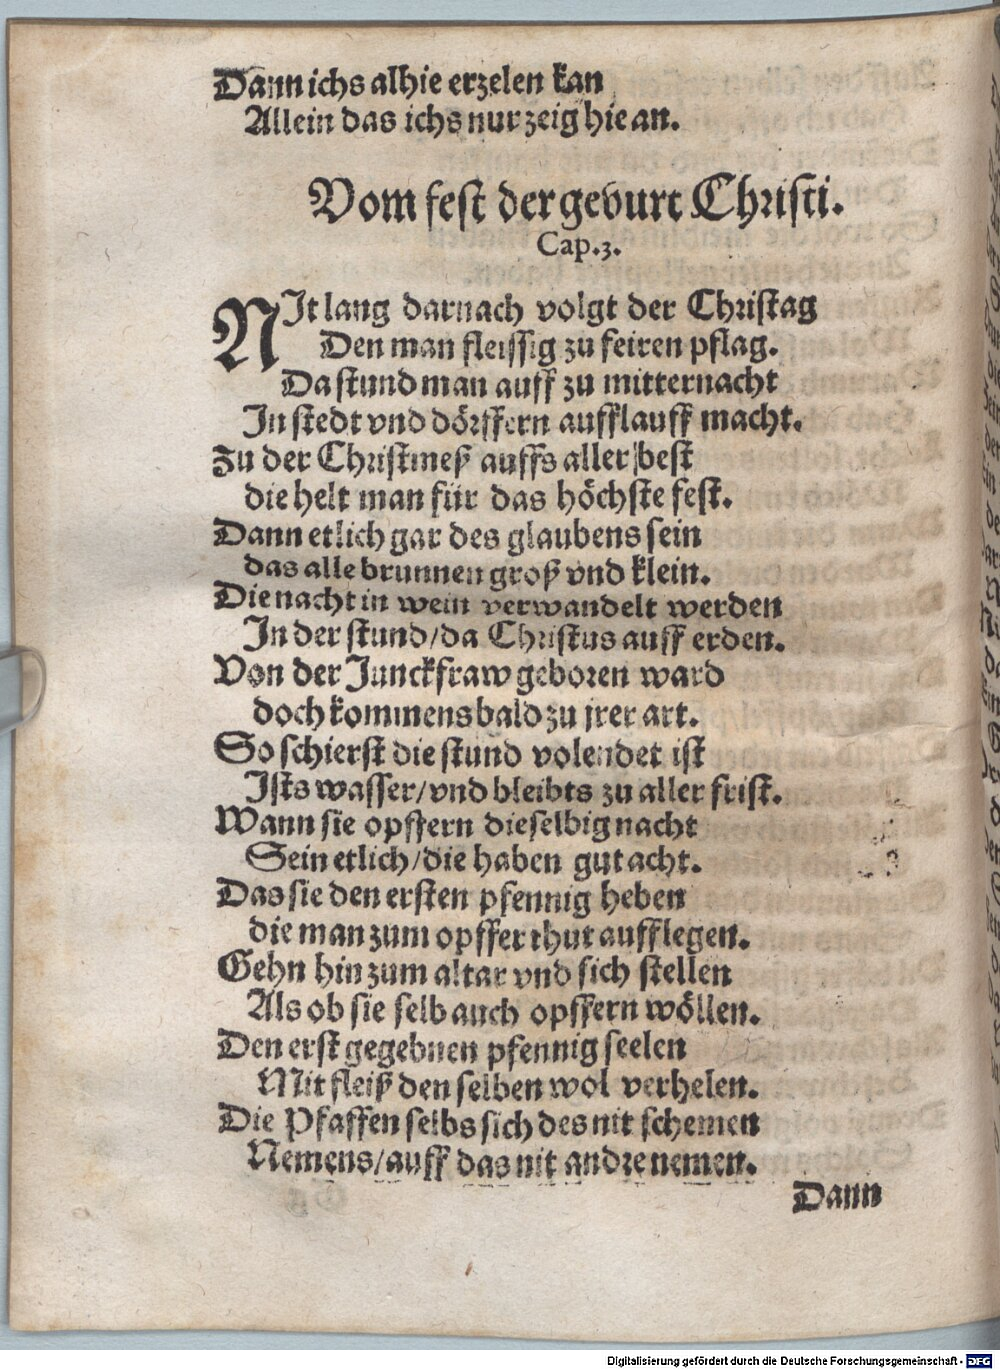 Dann ichs alhie erzelen kan
Allein das ichs nur zeig hie an.
Vom fest der geburt Christi.
Cap.3.
NIt lang darnach volgt der Christag
Den man fleissig zu feiren pflag.
Da stund man auff zu mitternacht
In stedt vnd dörffern aufflauff macht.
Zu der Christmeß auffs aller best
die helt man für das höchste fest.
Dann etlich gar des glaubens sein
das alle brunnen groß vnd klein.
Die nacht in wein verwandelt werden
In der stund/da Christus auff erden.
Von der Junckfraw geboren ward
doch kommens bald zu jrer art.
So schierst die stund volendet ist
Ists wasser/vnd bleibts zu aller frist.
Wann sie opffern dieselbig nacht
Sein etlich/die haben gut acht.
Das sie den ersten pfennig heben
die man zum opffer thut aufflegen.
Gehn hin zum altar vnd sich stellen
Als ob sie selb auch opffern wöllen.
Den erst gegebnen pfennig seelen
Mit fleiß den selben wol verhelen.
Die Pfaffen selbs sich des nit schemen
Nemens/auff das nit andre nemen.
Dann
Digitalisierung gefördert durch die Deutsche Forschungsgemeinschaft - DFG